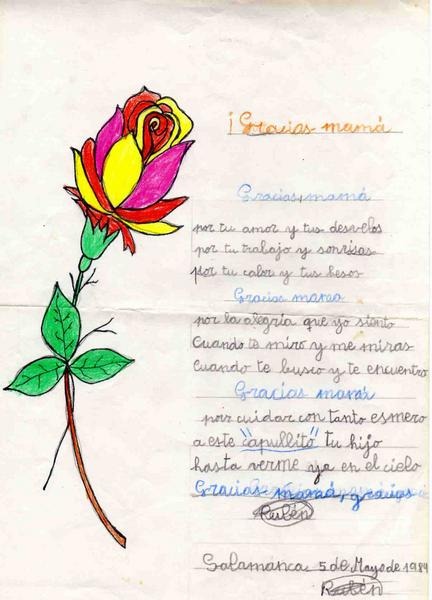 ¡Gracias mamá
Gracias, mamá
por tu amor y tus desvelos
por tu trabajo y sonrisas
por tu calor y tus besos
Gracias mamá
por la alegría que yo siento
Cuando te miro y me miras
Cuando te busco y te encuentro
Gracias mamá
por cuidar con tanto esmero
a este "capullito" tu hijo
hasta verme ya en el cielo
Gracias mamá, gracias
Rubén
Salamanca 5 de Mayo de 1984
Rubén